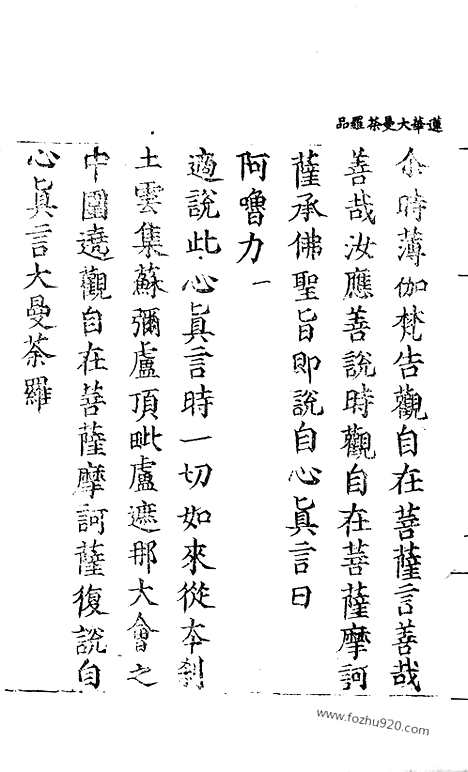 蓮華大曼茶羅品
尒時薄伽梵告觀自在菩薩言善哉
善哉汝應善說時觀自在菩薩摩訶
薩承佛聖旨即說自心眞言曰
阿嚕力一
適說此心眞言時一切如來從夲剎
土雲集蘇彌盧頂毗盧遮那大會之
中圍遶觀自在菩薩摩訶薩復說自
心眞言大曼茶羅
www.fozhu920.com